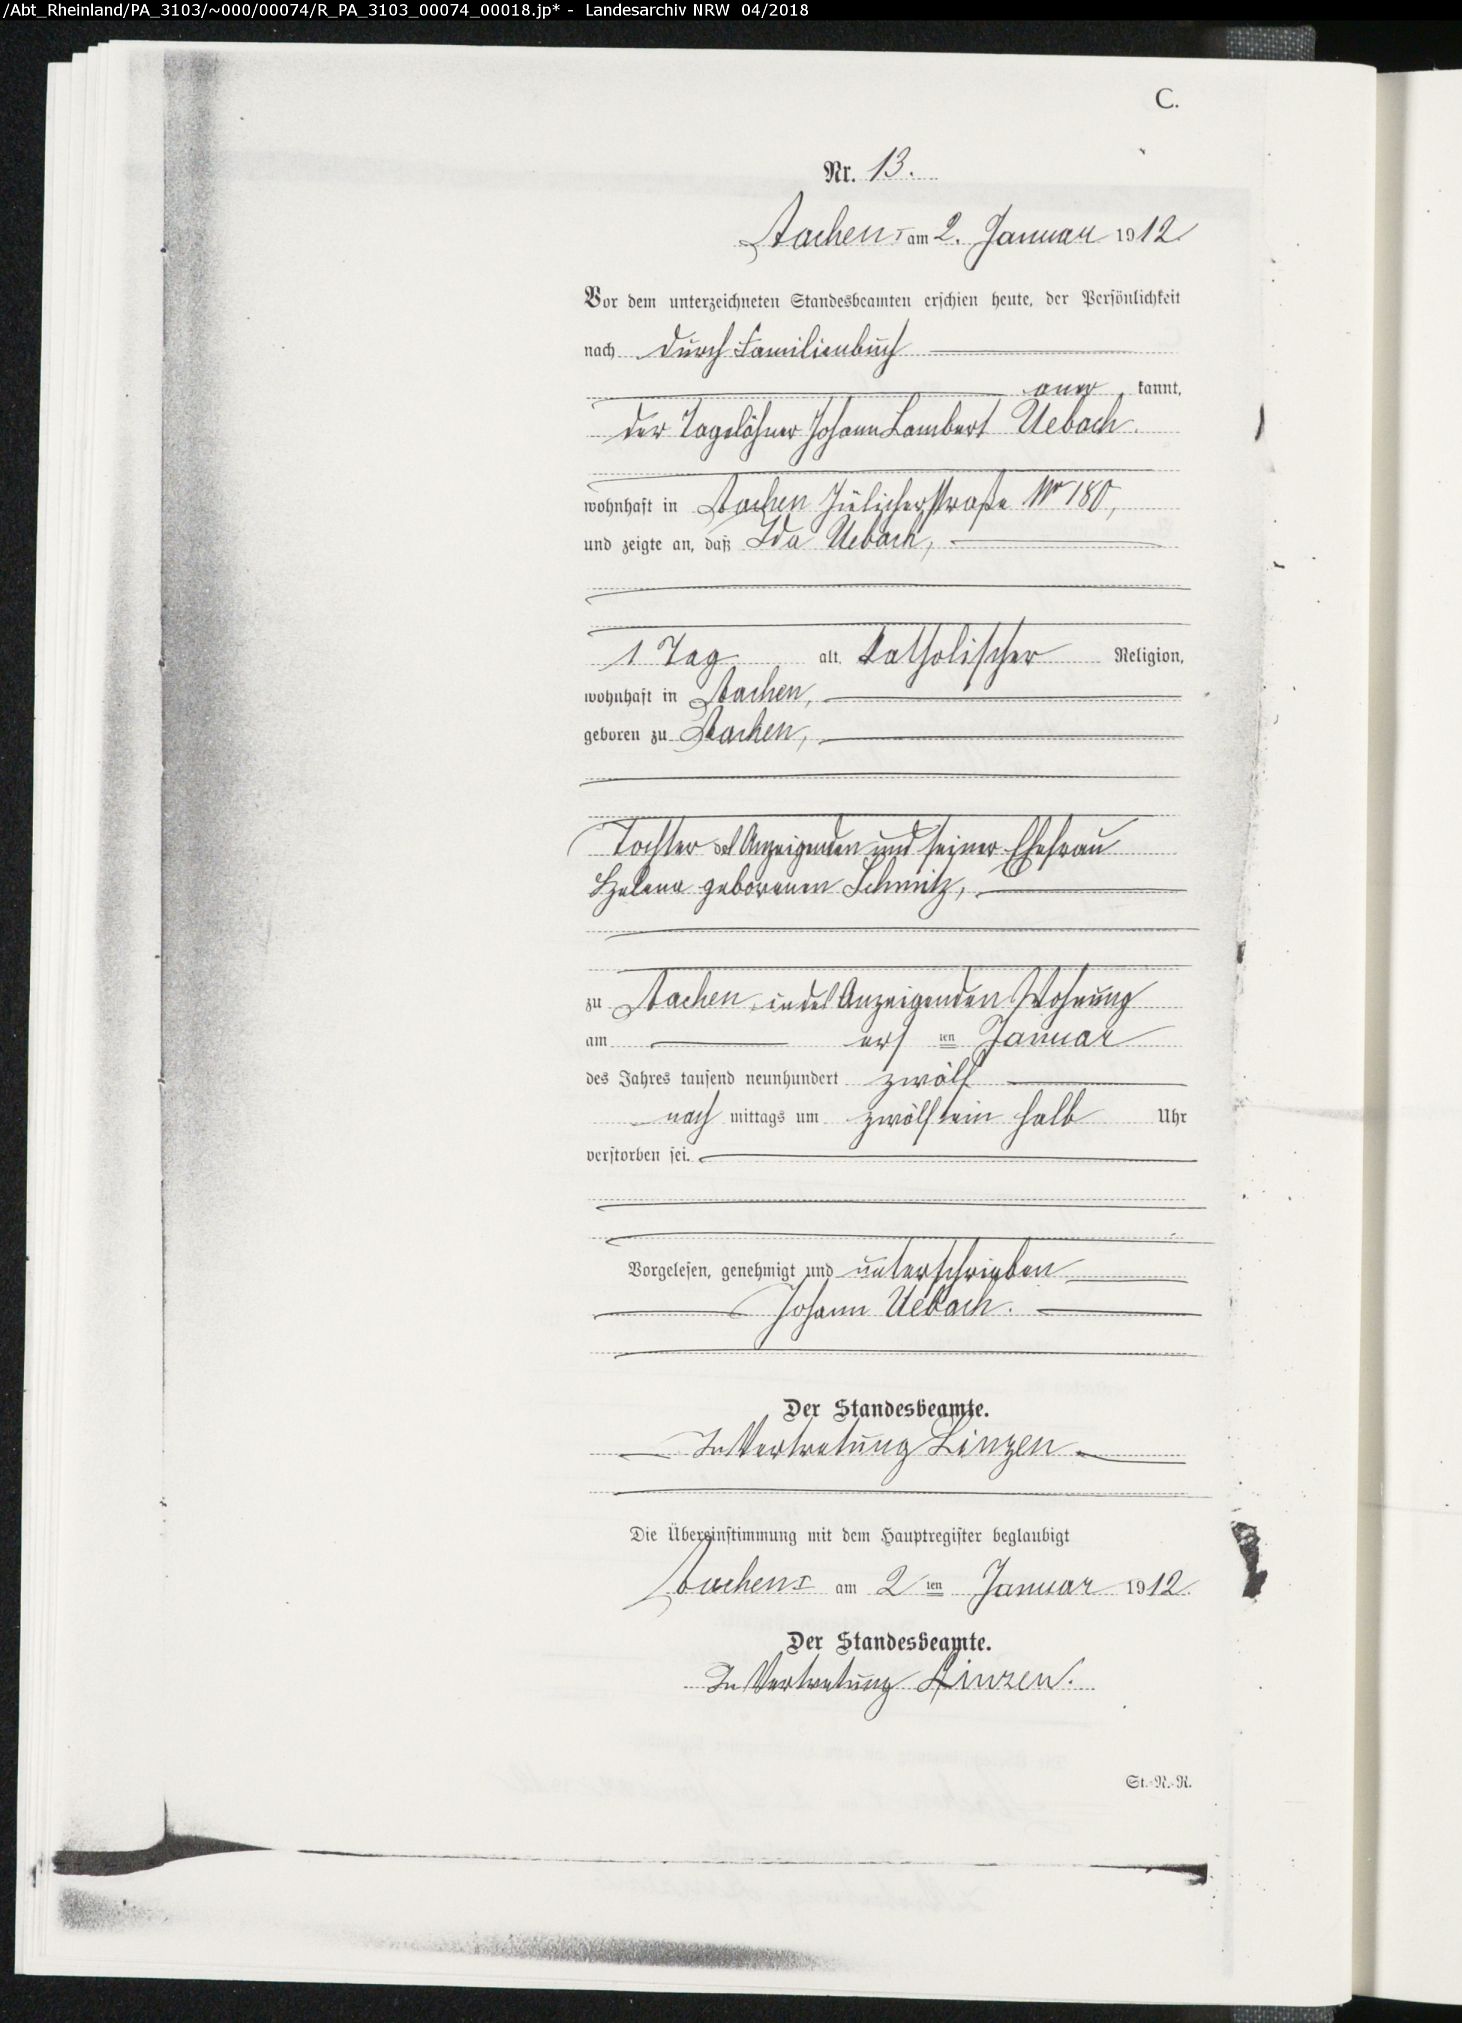 /Abt_Rheinland/PA_3103/~000/00074/R_PA_3103_00074_00018.jp* - Landesarchiv NRW 04/2018
C.
Nr. 13.
Aachen I am 2. Januar 1912
Vor dem unterzeichneten Standesbeamten erschien heute, der Persönlichkeit
nach durch Familienbuch
aner kannt,
der Tagelöhner Johann Lambert Uebach.
wohnhaft in Aachen Jülicherstraße Nr 180,
und zeigte an, daß Ida Uebach,
1 Tag alt, katholischer Religion,
wohnhaft in Aachen,
geboren zu Aachen,
Tochter des Anzeigenden und seiner Ehefrau
Helena geborenen Schmitz,
zu Aachen in des Anzeigenden Wohnung
am ersten Januar
des Jahres tausend neunhundert zwölf
nach mittags um zwölf ein halb Uhr
verstorben sei.
Vorgelesen, genehmigt und unterschrieben
Johann Uebach.
Der Standesbeamte.
In Vertretung Linzen.
Die Übereinstimmung mit dem Hauptregister beglaubigt
Aachen I am 2 ten Januar 1912.
Der Standesbeamte.
In Vertretung Linzen.
St.-N.-R.